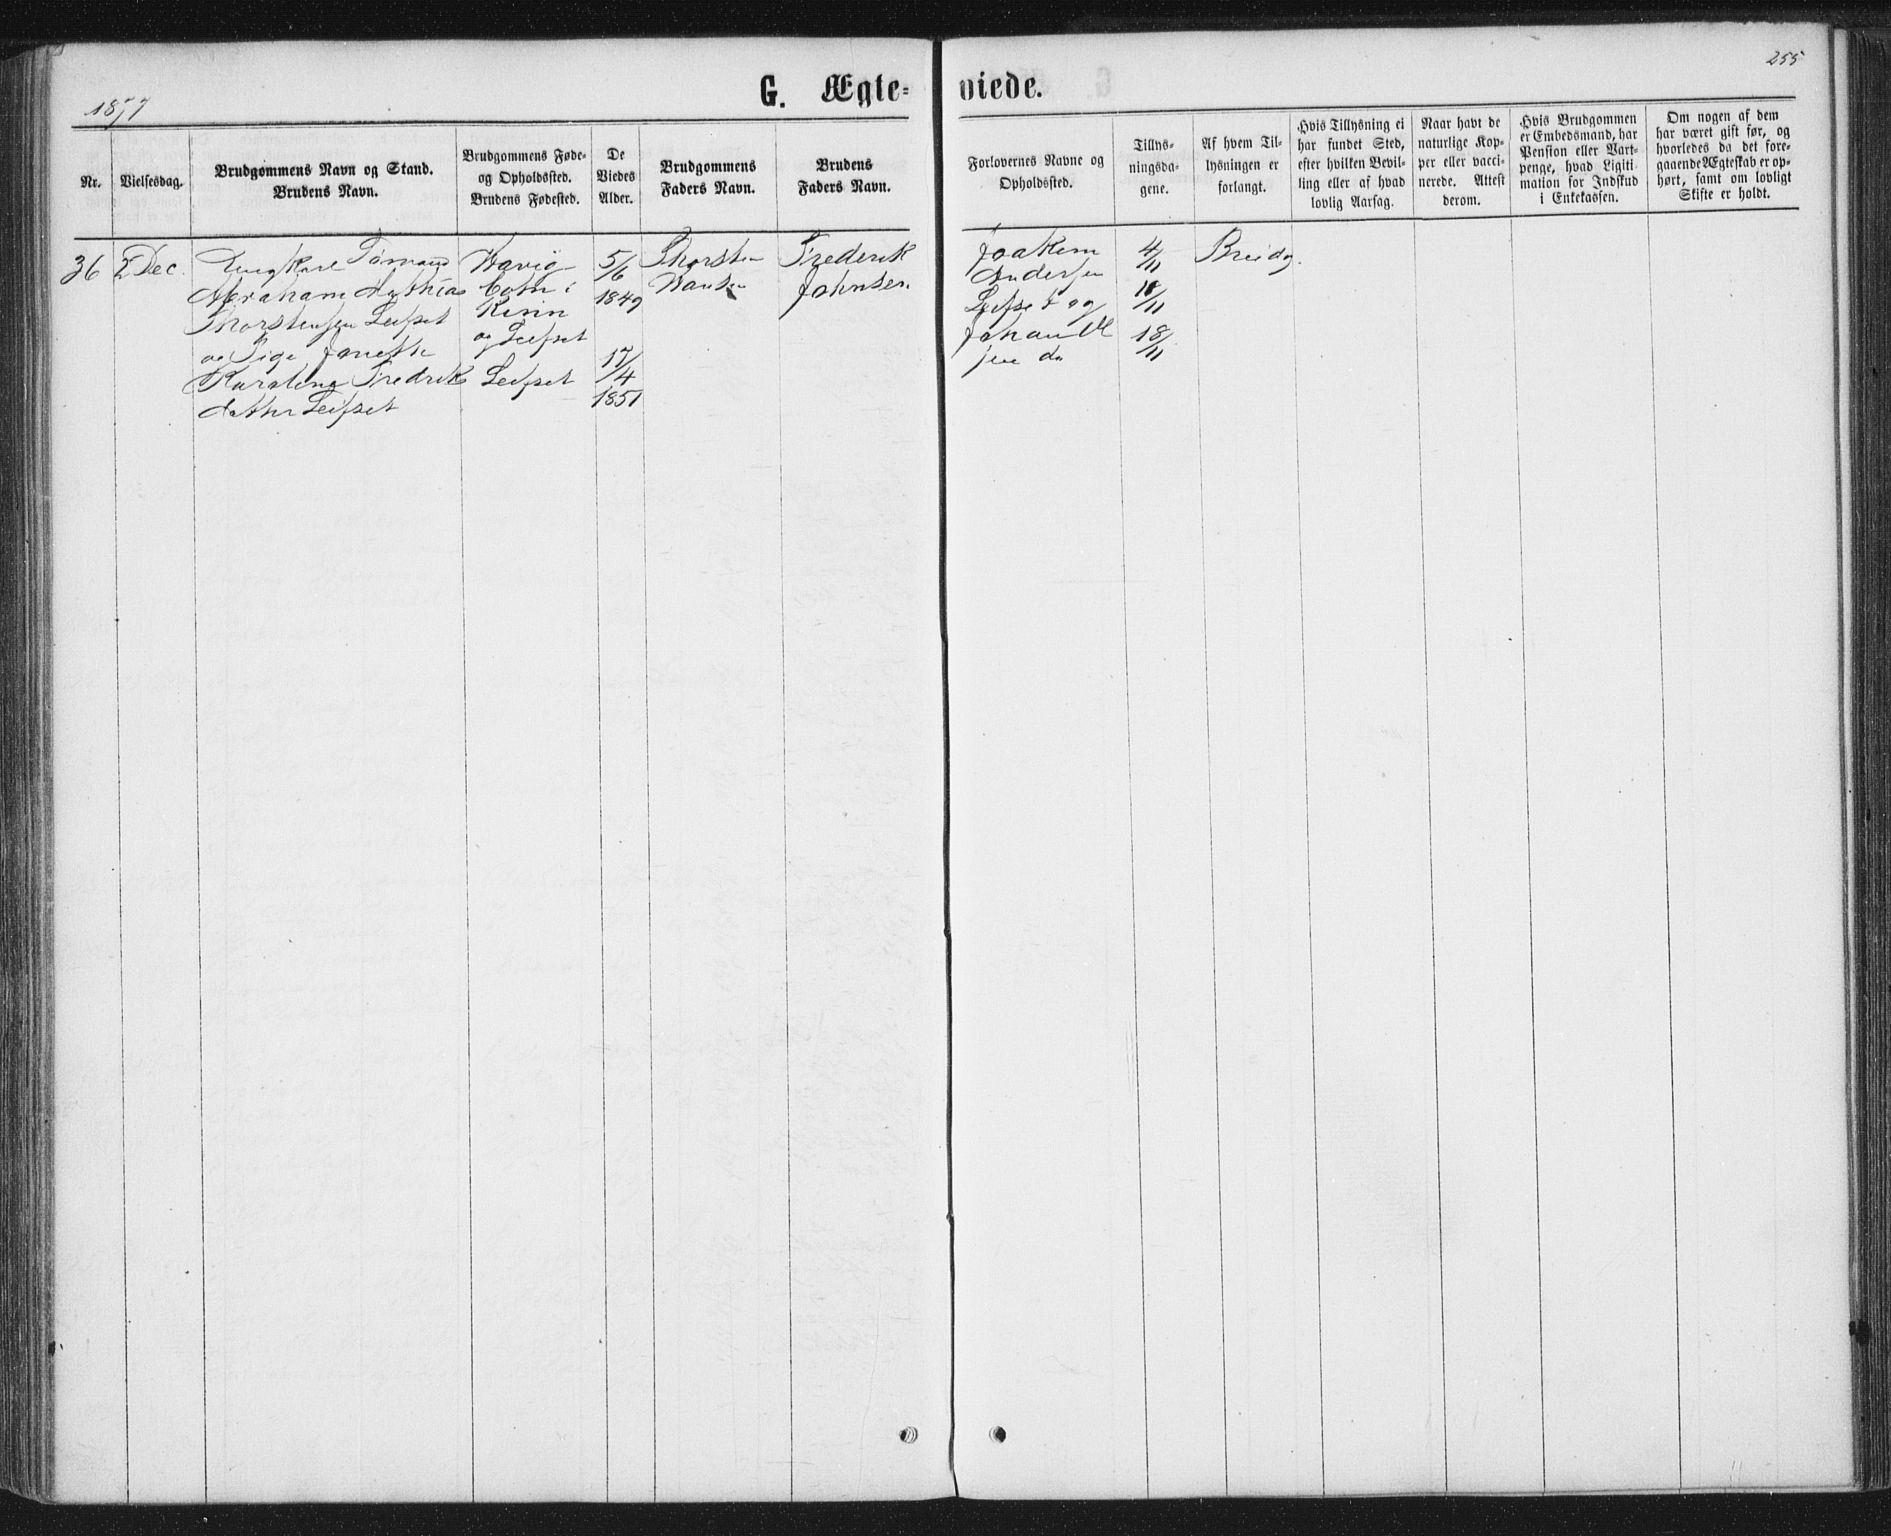 255
1877
G. Ægte= viede.
Nr.
Vielsesdag.
Brudgommens Navn og Stand.
Brudens Navn.
Brudgommens Føde-
og Opholdssted.
Brudens Fødested.
De
Viedes
Alder.
Brudgommens
Faders Navn.
Brudens
Faders Navn.
Forlovernes Navne og
Opholdssted.
Tillys-
ningsda-
gene.
Af hvem Til-
lysningen er
forlangt.
Hvis Tillysning ei
har fundet Sted,
efter hvilken Bevil-
ling eller af hvad
lovlig Aarsag.
Naar havt de
naturlige Kop-
per eller vacci-
nerede. Attest
derom.
Hvis Brudgommen
er Embedsmand, har
Pension eller Vart-
penge, hvad Ligiti-
mation for Indskud
i Enkekassen.
Om nogen af dem
har været gift før, og
hvorledes da det fore-
gaaende Ægteskab er op-
hørt, samt om lovligt
Skifte er holdt.
36
2 Dec.
Ungkarl
Abraham Mathias
Thorstensen Leifset
og Pige
Karoline Fredriks
datter Leifset
i
Kinn
og Leifset
Leifset
5/6
1849
17/4
1851
Thorsten
Hansen
Frederik
Johnsen
Joakem
Andersen
Leifset og
do
4/11
11/11
18/11
Brudg.